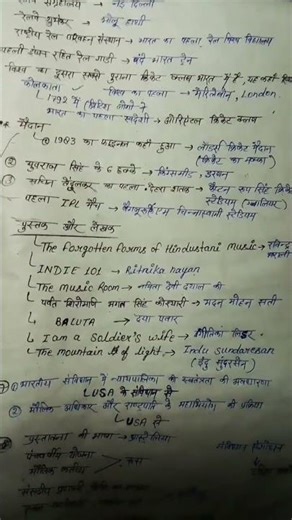 रेलवे संग्रहालय → नई दिल्ली
रेलवे शुभंकर → भोलू हाथी
राष्ट्रीय रेल परिवहन संस्थान → भारत का पहला, रेल विश्व विद्यालय
पहली इंजन रहित रेल गाड़ी → वंदे भारत ट्रेन
विश्व का दूसरा सबसे पुराना क्रिकेट क्लब भारत में है, यह कहाँ
कोलकाता विश्व का पहला → मैरिलेबोन, London
1792 में ब्रिटिश
भारत का पहला स्वदेशी → ओरिएंटल क्रिकेट क्लब
* मैदान
① 1983 का फाइनल कहाँ हुआ → लॉर्ड्स क्रिकेट मैदान
(क्रिकेट का मक्का)
② युवराज सिंह के 6 छक्के → किंग्समीड, डरबन
③ सचिन तेंदुलकर का पहला शतक → कैप्टन रूप सिंह क्रिकेट
स्टेडियम (ग्वालियर)
पहला IPL मैच → चिन्नास्वामी स्टेडियम
पुस्तक और लेखक
The Forgotten forms of Hindustani music → रविन्द्र
INDIE 101 → Rithika nayan
The music Room → नमिता देवी दयाल की
पर्वत शिरोमणि भगत सिंह कोश्यारी → मदन मोहन सती
BALUTA → दया पवार
I am a soldier's wife →
The mountain of light → Indu sundaresan
(इंदु सुंदरेसन)
⑦ ① भारतीय संविधान में न्यायपालिका की स्वतंत्रता की अवधारणा
USA के संविधान से
② मौलिक अधिकार और राष्ट्रपति में महाभियोग की प्रक्रिया
USA से
प्रस्तावना की भाषा → ऑस्ट्रेलिया
पंचवर्षीय योजना
मौलिक कर्तव्य → रूस